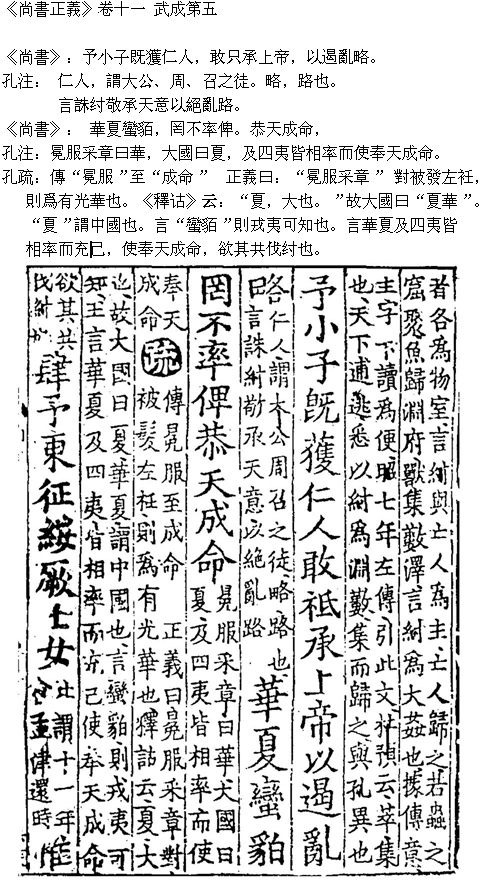 《尚書正義》卷十一 武成第五
《尚書》：予小子既獲仁人，敢只承上帝，以遏亂略。
孔注： 仁人，謂大公、周、召之徒。略，路也。
言誅紂敬承天意以絕亂路。
《尚書》： 華夏蠻貊，罔不率俾。恭天成命，
孔注：冕服采章曰華，大國曰夏，及四夷皆相率而使奉天成命。
孔疏：傳“冕服”至“成命” 正義曰：“冕服采章” 對被發左衽，
則爲有光華也。《釋诂》云：“夏，大也。”故大國曰“夏華”。
“夏”謂中國也。言“蠻貊”則戎夷可知也。言華夏及四夷皆
相率而充已，使奉天成命，欲其共伐纣也。
者各爲物室言紂與亡人爲主亡人歸之若蟲之
窟聚魚歸淵府獸集藪澤言紂爲大姦也據傳意
主字下讀爲便昭七年左傳引此文杜預云萃集
也天下逋逃悉以紂爲淵藪集而歸之與孔異也
予小子既獲仁人敢祗承上帝以遏亂
略 仁人謂太公周召之徒略路也
言誅紂敬承天意以絕亂路
華夏蠻貊
罔不率俾恭天成命
冕服采章曰華大國曰
夏及四夷皆相率而使
奉天
成命
疏
傳冕服至成命 正義曰冕服采章對
被髮左衽則爲有光華也釋詁云夏大
也故大國曰夏華夏謂中國也言蠻貊則戎夷可
知王言華夏及四夷皆相率而充已使奉天成命
欲其共
伐紂也
肆予東征綏厥士女
此謂十一年
會孟津還時
惟